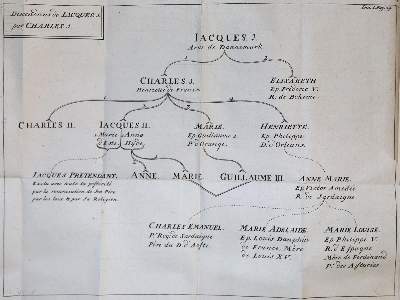 Descendans de IACQUES J.
par CHARLES J.
IACQUES J.
Anne de Dannemark
CHARLES J.
Henriette de France
ELISABETH
Ep. Frideric V.
R. de Boheme
CHARLES II.
IACQUES II.
Marie Anne
d'Est Hyde
MARIE
Ep. Guillaume
P. d'Orange
HENRIETTE
Ep. Philippe
D. d'Orleans
IACQUES PRÉTENDANT.
Exclu avec toute sa postérité
par la renonciation de Son Pére
par les loix & par Sa Religion
ANNE
MARIE
GUILLAUME III
ANNE MARIE
Ep. Victor Amedée
R. de Sardaigne
CHARLES EMANUEL
R. de Sardaigne
MARIE ADELAIDE
Ep. Louis Dauphin
de France, Mére
de Louis XV.
MARIE LOUISE
Ep. Philippe V.
R. d'Espagne
Mére de Ferdinand
P. des Asturies